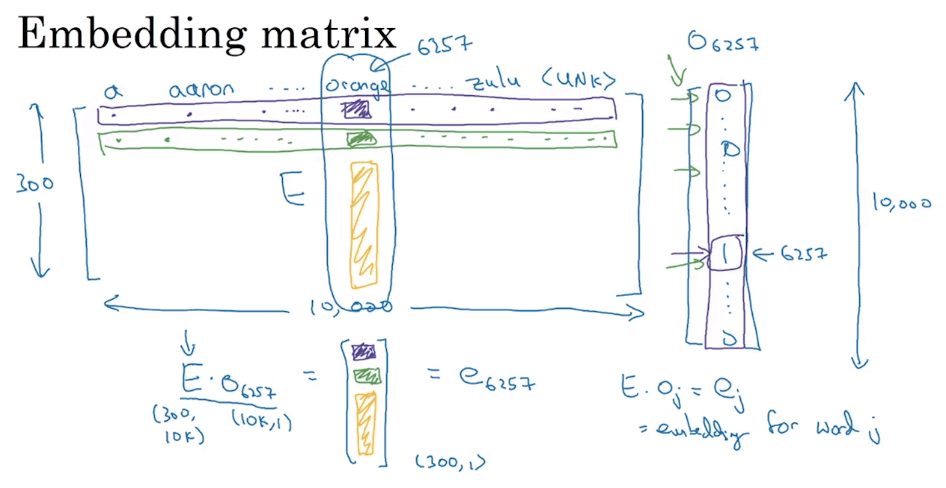 Embedding matrix
6257
O6257
a aaron .... orange .... zulu <UNK>
0
0
300
E
10,000
1 ← 6257
10,000
0
E · O6257 = [ ] = e6257
(300, 10K) (10K, 1)
(300, 1)
E · Oj = ej
= embedding for word j